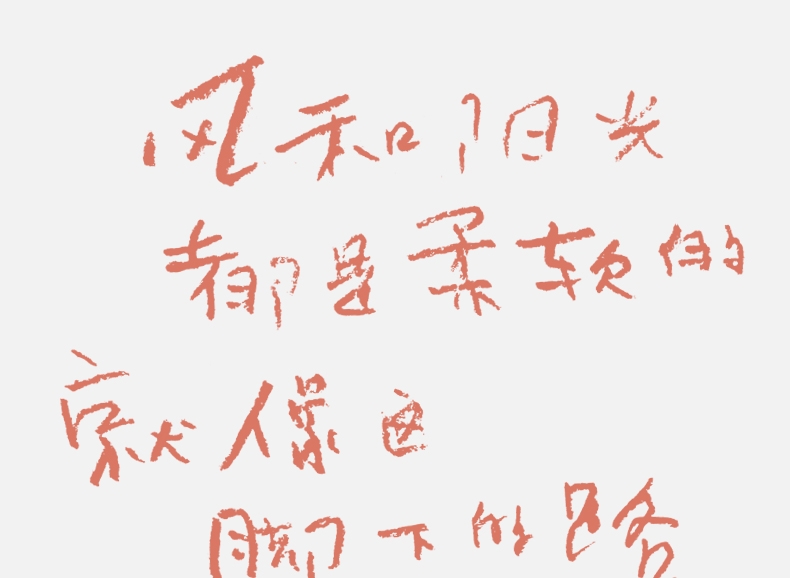 风和阳光
都是柔软的
就像这
脚下的路